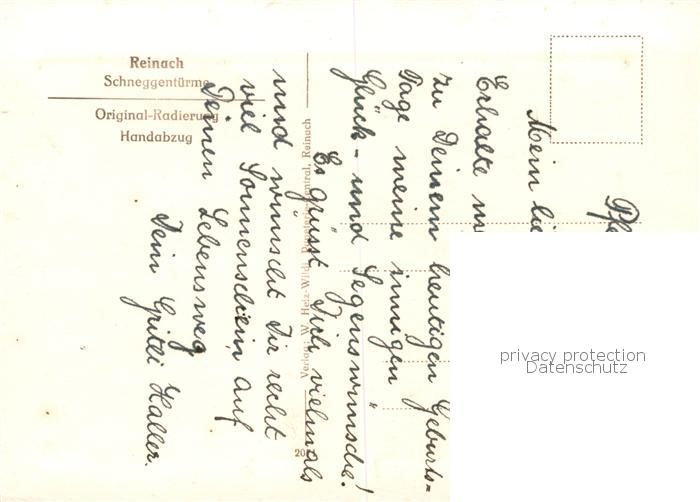 Reinach
Schneggentürme
Original-Radierung
Handabzug
Verlag: W. Helz-Wildi, Papeterie Central, Reinach
Mein
Erhalte
zu Deinem heutigen Geburts=
Tage meine innigen
Glück- und Segenswünsche!
Es grüsst Dich vielmals
und wünscht Dir recht
viel Sonnenschein auf
Deinen Lebensweg
Dein Gritli Haller.
privacy protection
Datenschutz